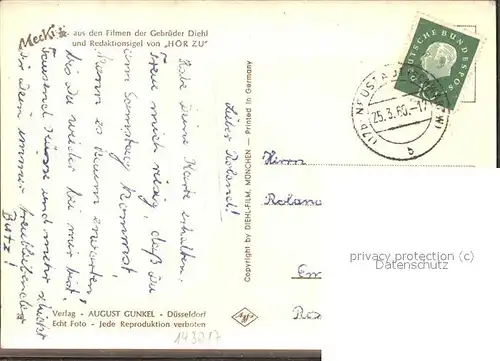 Mecki aus den Filmen der Gebrüder Diehl
und Redaktionsigel von „HÖR ZU"
Lieber Roland!
Habe Deine Karte erhalten.
Freue mich riesig, daß Du
am Samstag kommst.
Kann es kaum erwarten
bis Du wieder bei mir bist.
Tausend Küsse und mehr schickt
Dir Dein immer treubleibender
Butz!
Copyright by DIEHL-FILM, MÜNCHEN — Printed in Germany
Verlag - AUGUST GUNKEL - Düsseldorf
Echt Foto - Jede Reproduktion verboten
143017
Agfa
DEUTSCHE BUNDESPOST
NEUSTADT
25.3.60.-17
b
Herrn
Rolan
privacy protection
Datenschutz